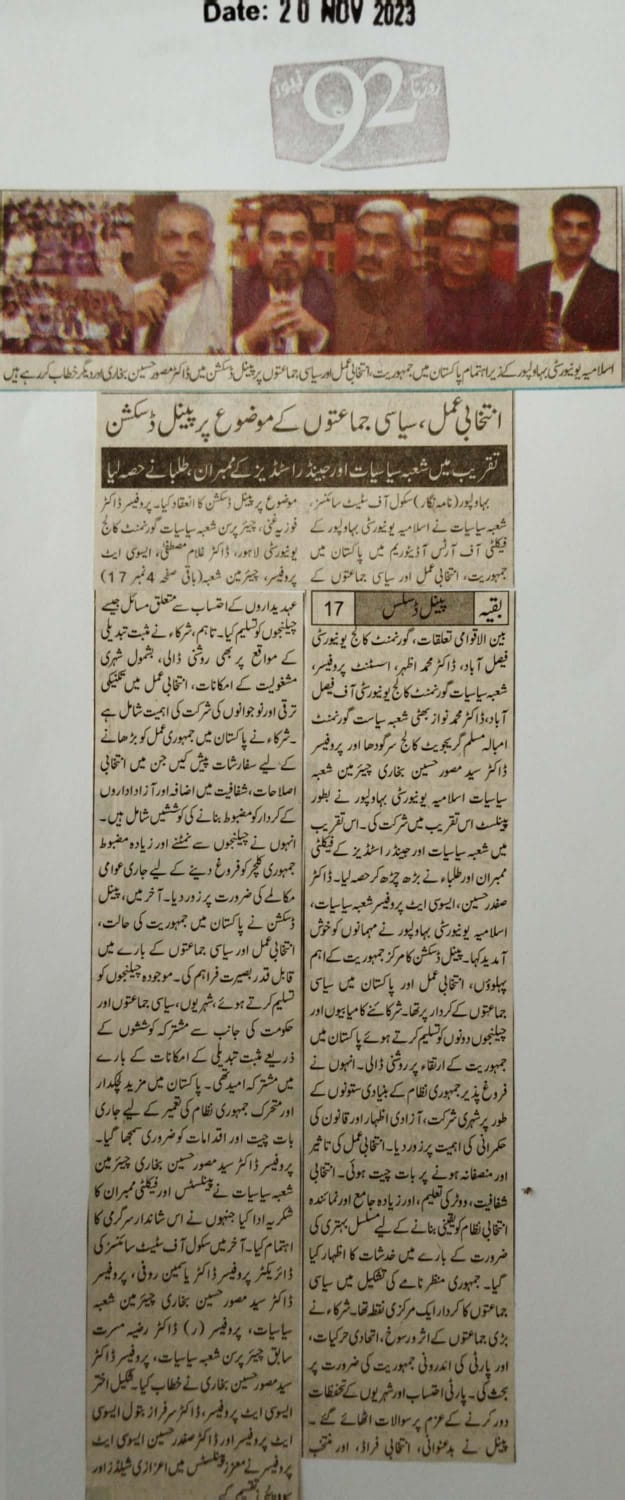 Date: 20 NOV 2023
روزنامہ 92 نیوز
اسلامیہ یونیورسٹی بہاولپور کے زیر اہتمام پاکستان میں جمہوریت، انتخابی عمل اور سیاسی جماعتوں پر پینل ڈسکشن میں ڈاکٹر مصور حسین بخاری اور دیگر خطاب کر رہے ہیں
انتخابی عمل، سیاسی جماعتوں کے موضوع پر پینل ڈسکشن
تقریب میں شعبہ سیاسیات اور جینڈر اسٹڈیز کے ممبران، طلبا نے حصہ لیا
بہاولپور (نامہ نگار) سکول آف سٹیٹ سائنسز،
شعبہ سیاسیات نے اسلامیہ یونیورسٹی بہاولپور کے
فیکلٹی آف آرٹس آڈیٹوریم میں پاکستان میں
جمہوریت، انتخابی عمل اور سیاسی جماعتوں کے
موضوع پر پینل ڈسکشن کا انعقاد کیا۔ پروفیسر ڈاکٹر
فوزیہ غنی، چیئر پرسن شعبہ سیاسیات گورنمنٹ کالج
یونیورسٹی لاہور، ڈاکٹر غلام مصطفیٰ، ایسوسی ایٹ
پروفیسر، چیئرمین شعبہ (باقی صفحہ 4 نمبر 17)
بقیہ پینل ڈسکس 17
بین الاقوامی تعلقات، گورنمنٹ کالج یونیورسٹی
فیصل آباد، ڈاکٹر محمد اظہر، اسسٹنٹ پروفیسر،
شعبہ سیاسیات گورنمنٹ کالج یونیورسٹی آف فیصل
آباد، ڈاکٹر محمد نواز بھٹی شعبہ سیاست گورنمنٹ
امبالہ مسلم گریجویٹ کالج سرگودھا اور پروفیسر
ڈاکٹر سید مصور حسین بخاری چیئرمین شعبہ
سیاسیات اسلامیہ یونیورسٹی بہاولپور نے بطور
پینلسٹ اس تقریب میں شرکت کی۔ اس تقریب
میں شعبہ سیاسیات اور جینڈر اسٹڈیز کے فیکلٹی
ممبران اور طلباء نے بڑھ چڑھ کر حصہ لیا۔ ڈاکٹر
صفدر حسین، ایسوسی ایٹ پروفیسر شعبہ سیاسیات،
اسلامیہ یونیورسٹی بہاولپور نے مہمانوں کو خوش
آمدید کہا۔ پینل ڈسکشن کا مرکز جمہوریت کے اہم
پہلوؤں، انتخابی عمل اور پاکستان میں سیاسی
جماعتوں کے کردار پر تھا۔ شرکائنے کامیابیوں اور
چیلنجوں دونوں کو تسلیم کرتے ہوئے پاکستان میں
جمہوریت کے ارتقاء پر روشنی ڈالی۔ انہوں نے
فروغ پذیر جمہوری نظام کے بنیادی ستونوں کے
طور پر شہری شرکت، آزادی اظہار اور قانون کی
حکمرانی کی اہمیت پر زور دیا۔ انتخابی عمل کی تاثیر
اور منصفانہ ہونے پر بات چیت ہوئی۔ انتخابی
شفافیت، ووٹر کی تعلیم، اور زیادہ جامع اور نمائندہ
انتخابی نظام کو یقینی بنانے کے لیے مسلسل بہتری کی
ضرورت کے بارے میں خدشات کا اظہار کیا
گیا۔ جمہوری منظر نامے کی تشکیل میں سیاسی
جماعتوں کا کردار ایک مرکزی نقطہ تھا۔ شرکاء نے
بڑی جماعتوں کے اثر و رسوخ، اتحادی حرکیات،
اور پارٹی کی اندرونی جمہوریت کی ضرورت پر
بحث کی۔ پارٹی احتساب اور شہریوں کے تحفظات
دور کرنے کے عزم پر سوالات اٹھائے گئے۔
پینل نے بدعنوانی، انتخابی فراڈ، اور منتخب
عہدیداروں کے احتساب سے متعلق مسائل جیسے
چیلنجوں کو تسلیم کیا۔ تاہم، شرکاء نے مثبت تبدیلی
کے مواقع پر بھی روشنی ڈالی، بشمول شہری
مشغولیت کے امکانات، انتخابی عمل میں تکنیکی
ترقی اور نوجوانوں کی شرکت کی اہمیت شامل ہے
۔ شرکاء نے پاکستان میں جمہوری عمل کو بڑھانے
کے لیے سفارشات پیش کیں جن میں انتخابی
اصلاحات، شفافیت میں اضافہ اور آزاد اداروں
کے کردار کو مضبوط بنانے کی کوششیں شامل ہیں۔
انہوں نے چیلنجوں سے نمٹنے اور زیادہ مضبوط
جمہوری کلچر کو فروغ دینے کے لیے جاری عوامی
مکالمے کی ضرورت پر زور دیا۔ آخر میں، پینل
ڈسکشن نے پاکستان میں جمہوریت کی حالت،
انتخابی عمل اور سیاسی جماعتوں کے بارے میں
قابل قدر بصیرت فراہم کی۔ موجودہ چیلنجوں کو
تسلیم کرتے ہوئے، شہریوں، سیاسی جماعتوں اور
حکومت کی جانب سے مشترکہ کوششوں کے
ذریعے مثبت تبدیلی کے امکانات کے بارے
میں مشترکہ امید تھی۔ پاکستان میں مزید لچکدار
اور متحرک جمہوری نظام کی تعمیر کے لیے جاری
بات چیت اور اقدامات کو ضروری سمجھا گیا۔
پروفیسر ڈاکٹر سید مصور حسین بخاری چیئرمین
شعبہ سیاسیات نے پینلسٹس اور فیکلٹی ممبران کا
شکریہ ادا کیا جنہوں نے اس شاندار سرگرمی کا
اہتمام کیا۔ آخر میں سکول آف سٹیٹ سائنسز کی
ڈائریکٹر پروفیسر ڈاکٹر یاسمین روفی، پروفیسر
ڈاکٹر سید مصور حسین بخاری چیئرمین شعبہ
سیاسیات، پروفیسر (ر) ڈاکٹر رضیہ مسرت
سابق چیئر پرسن شعبہ سیاسیات، پروفیسر ڈاکٹر
سید مصور حسین بخاری نے خطاب کیا۔ شکیل اختر
ایسوسی ایٹ پروفیسر، ڈاکٹر سرفراز بتول ایسوسی
ایٹ پروفیسر اور ڈاکٹر صفدر حسین ایسوسی ایٹ
پروفیسر نے معزز پینلسٹس میں اعزازی شیلڈز اور
تقسیم کیے